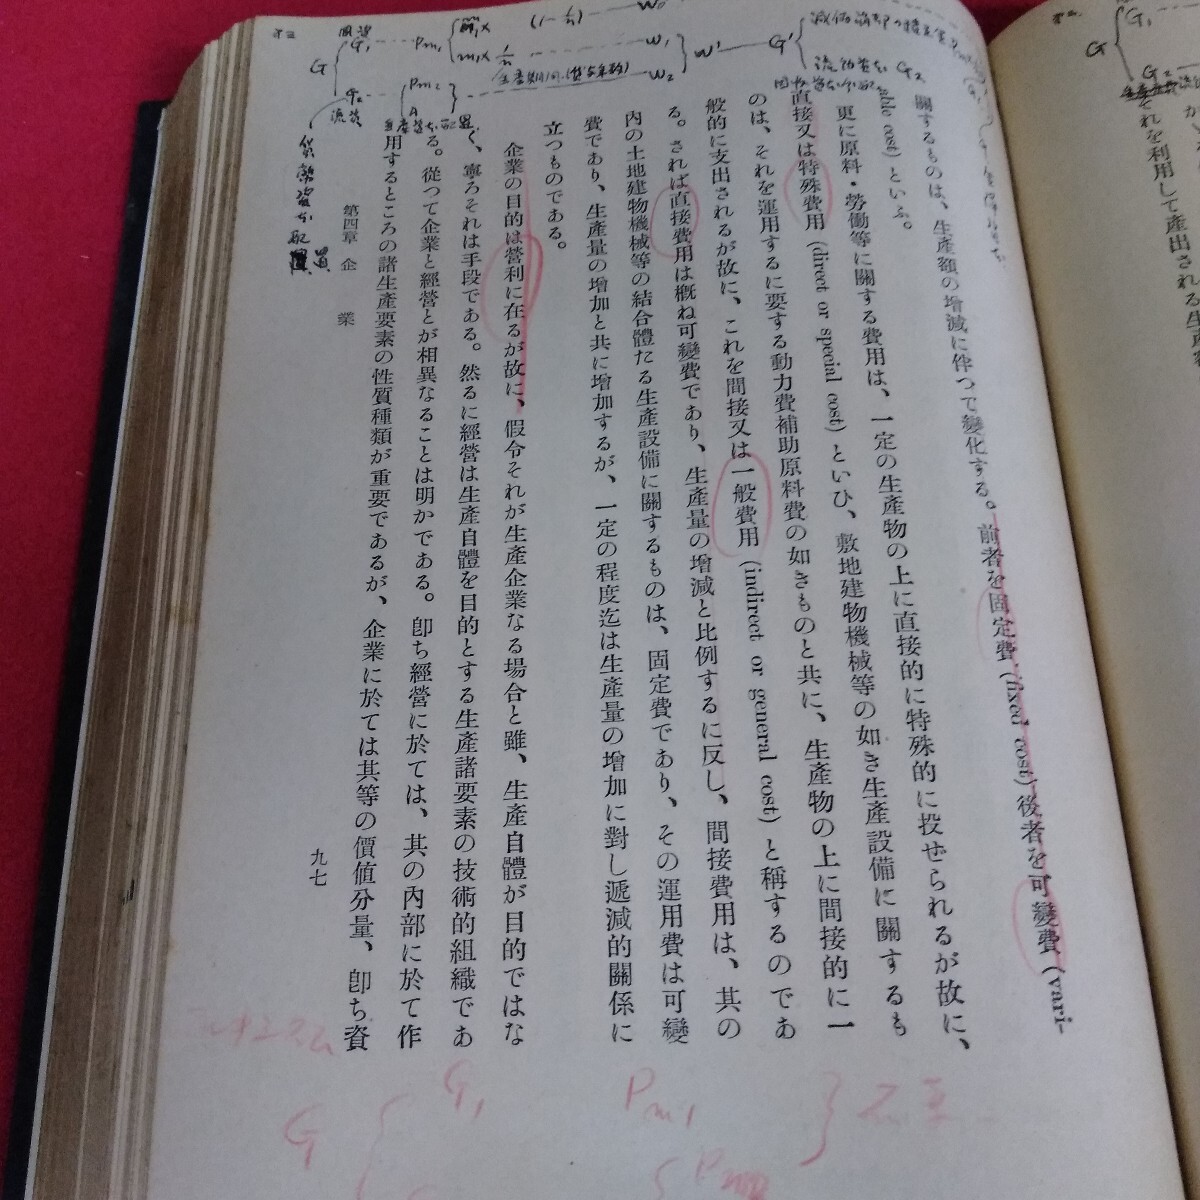 關するものは、生產額の增減に伴つて變化する。前者を固定費 (fixed cost) 後者を可變費 (vari-
able cost) といふ。
更に原料・勞働等に關する費用は、一定の生產物の上に直接的に特殊的に投ぜられるが故に、
直接又は特殊費用 (direct or special cost) といひ、敷地建物機械等の如き生產設備に關するも
のは、それを運用するに要する動力費補助原料費の如きものと共に、生產物の上に間接的に一
般的に支出されるが故に、これを間接又は一般費用 (indirect or general cost) と稱するのであ
る。されば直接費用は概ね可變費であり、生產量の增減と比例するに反し、間接費用は、其の
內の土地建物機械等の結合體たる生產設備に關するものは、固定費であり、その運用費は可變
費であり、生產量の增加と共に增加するが、一定の程度迄は生產量の增加に對し遞減的關係に
立つものである。
企業の目的は營利に在るが故に、假令それが生產企業なる場合と雖、生產自體が目的ではな
く、寧ろそれは手段である。然るに經營は生產自體を目的とする生產諸要素の技術的組織であ
る。從つて企業と經營とが相異なることは明かである。卽ち經營に於ては、其の內部に於て作
用するところの諸生產要素の性質種類が重要であるが、企業に於ては其等の價値分量、卽ち資
第四章 企業
九七
それを利用して產出される生產
G
G₁
Pm₁
W₁
W₂
W'
G'
G₂
Pm₂
A
G
G₁
Pm₁